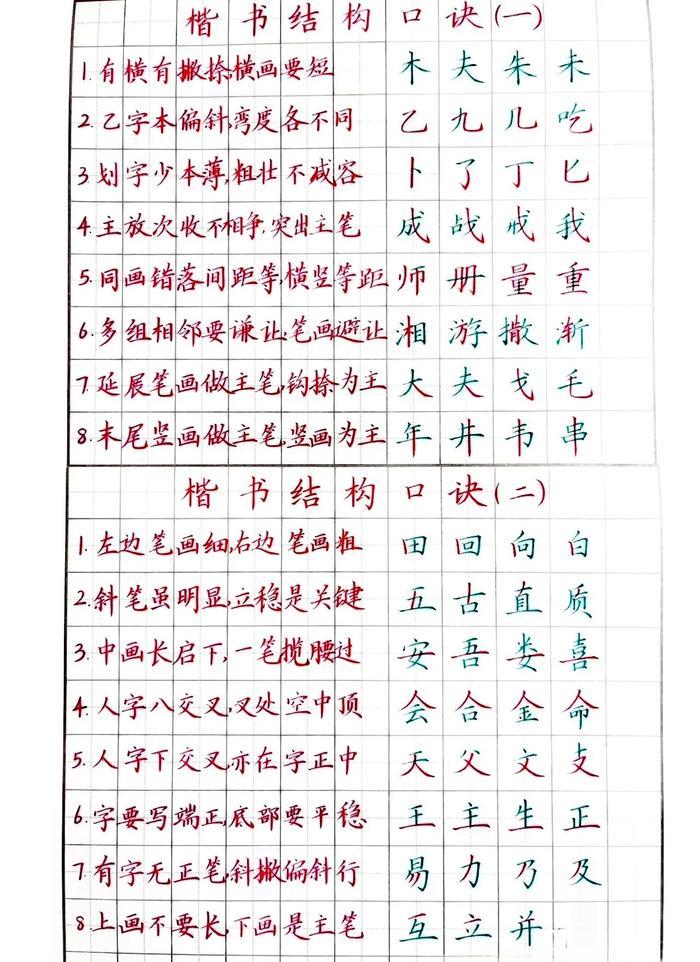 楷书结构口诀(一)
1.有横有撇捺,横画要短 木 夫 朱 未
2.乙字本偏斜,弯度各不同 乙 九 几 吃
3划字少本薄,粗壮不减容 卜 了 丁 匕
4.主放次收不相争,突出主笔 成 战 戒 我
5.同画错落间距等,横竖等距 师 册 量 重
6.多组相邻要谦让,笔画避让 湘 游 撒 渐
7.延展笔画做主笔,钩捺为主 大 夫 戈 毛
8.末尾竖画做主笔,竖画为主 年 井 韦 串
楷书结构口诀(二)
1.左边笔画细,右边笔画粗 田 回 向 白
2.斜笔虽明显,立稳是关键 五 古 直 质
3.中画长启下,一笔揽腰过 安 吾 娄 喜
4.人字八交叉,叉处空中顶 会 合 金 命
5.人字下交叉,亦在字正中 天 父 文 支
6.字要写端正,底部要平稳 王 主 生 正
7.有字无正笔,斜撇偏斜行 易 力 乃 及
8上画不要长,下画是主笔 互 立 并